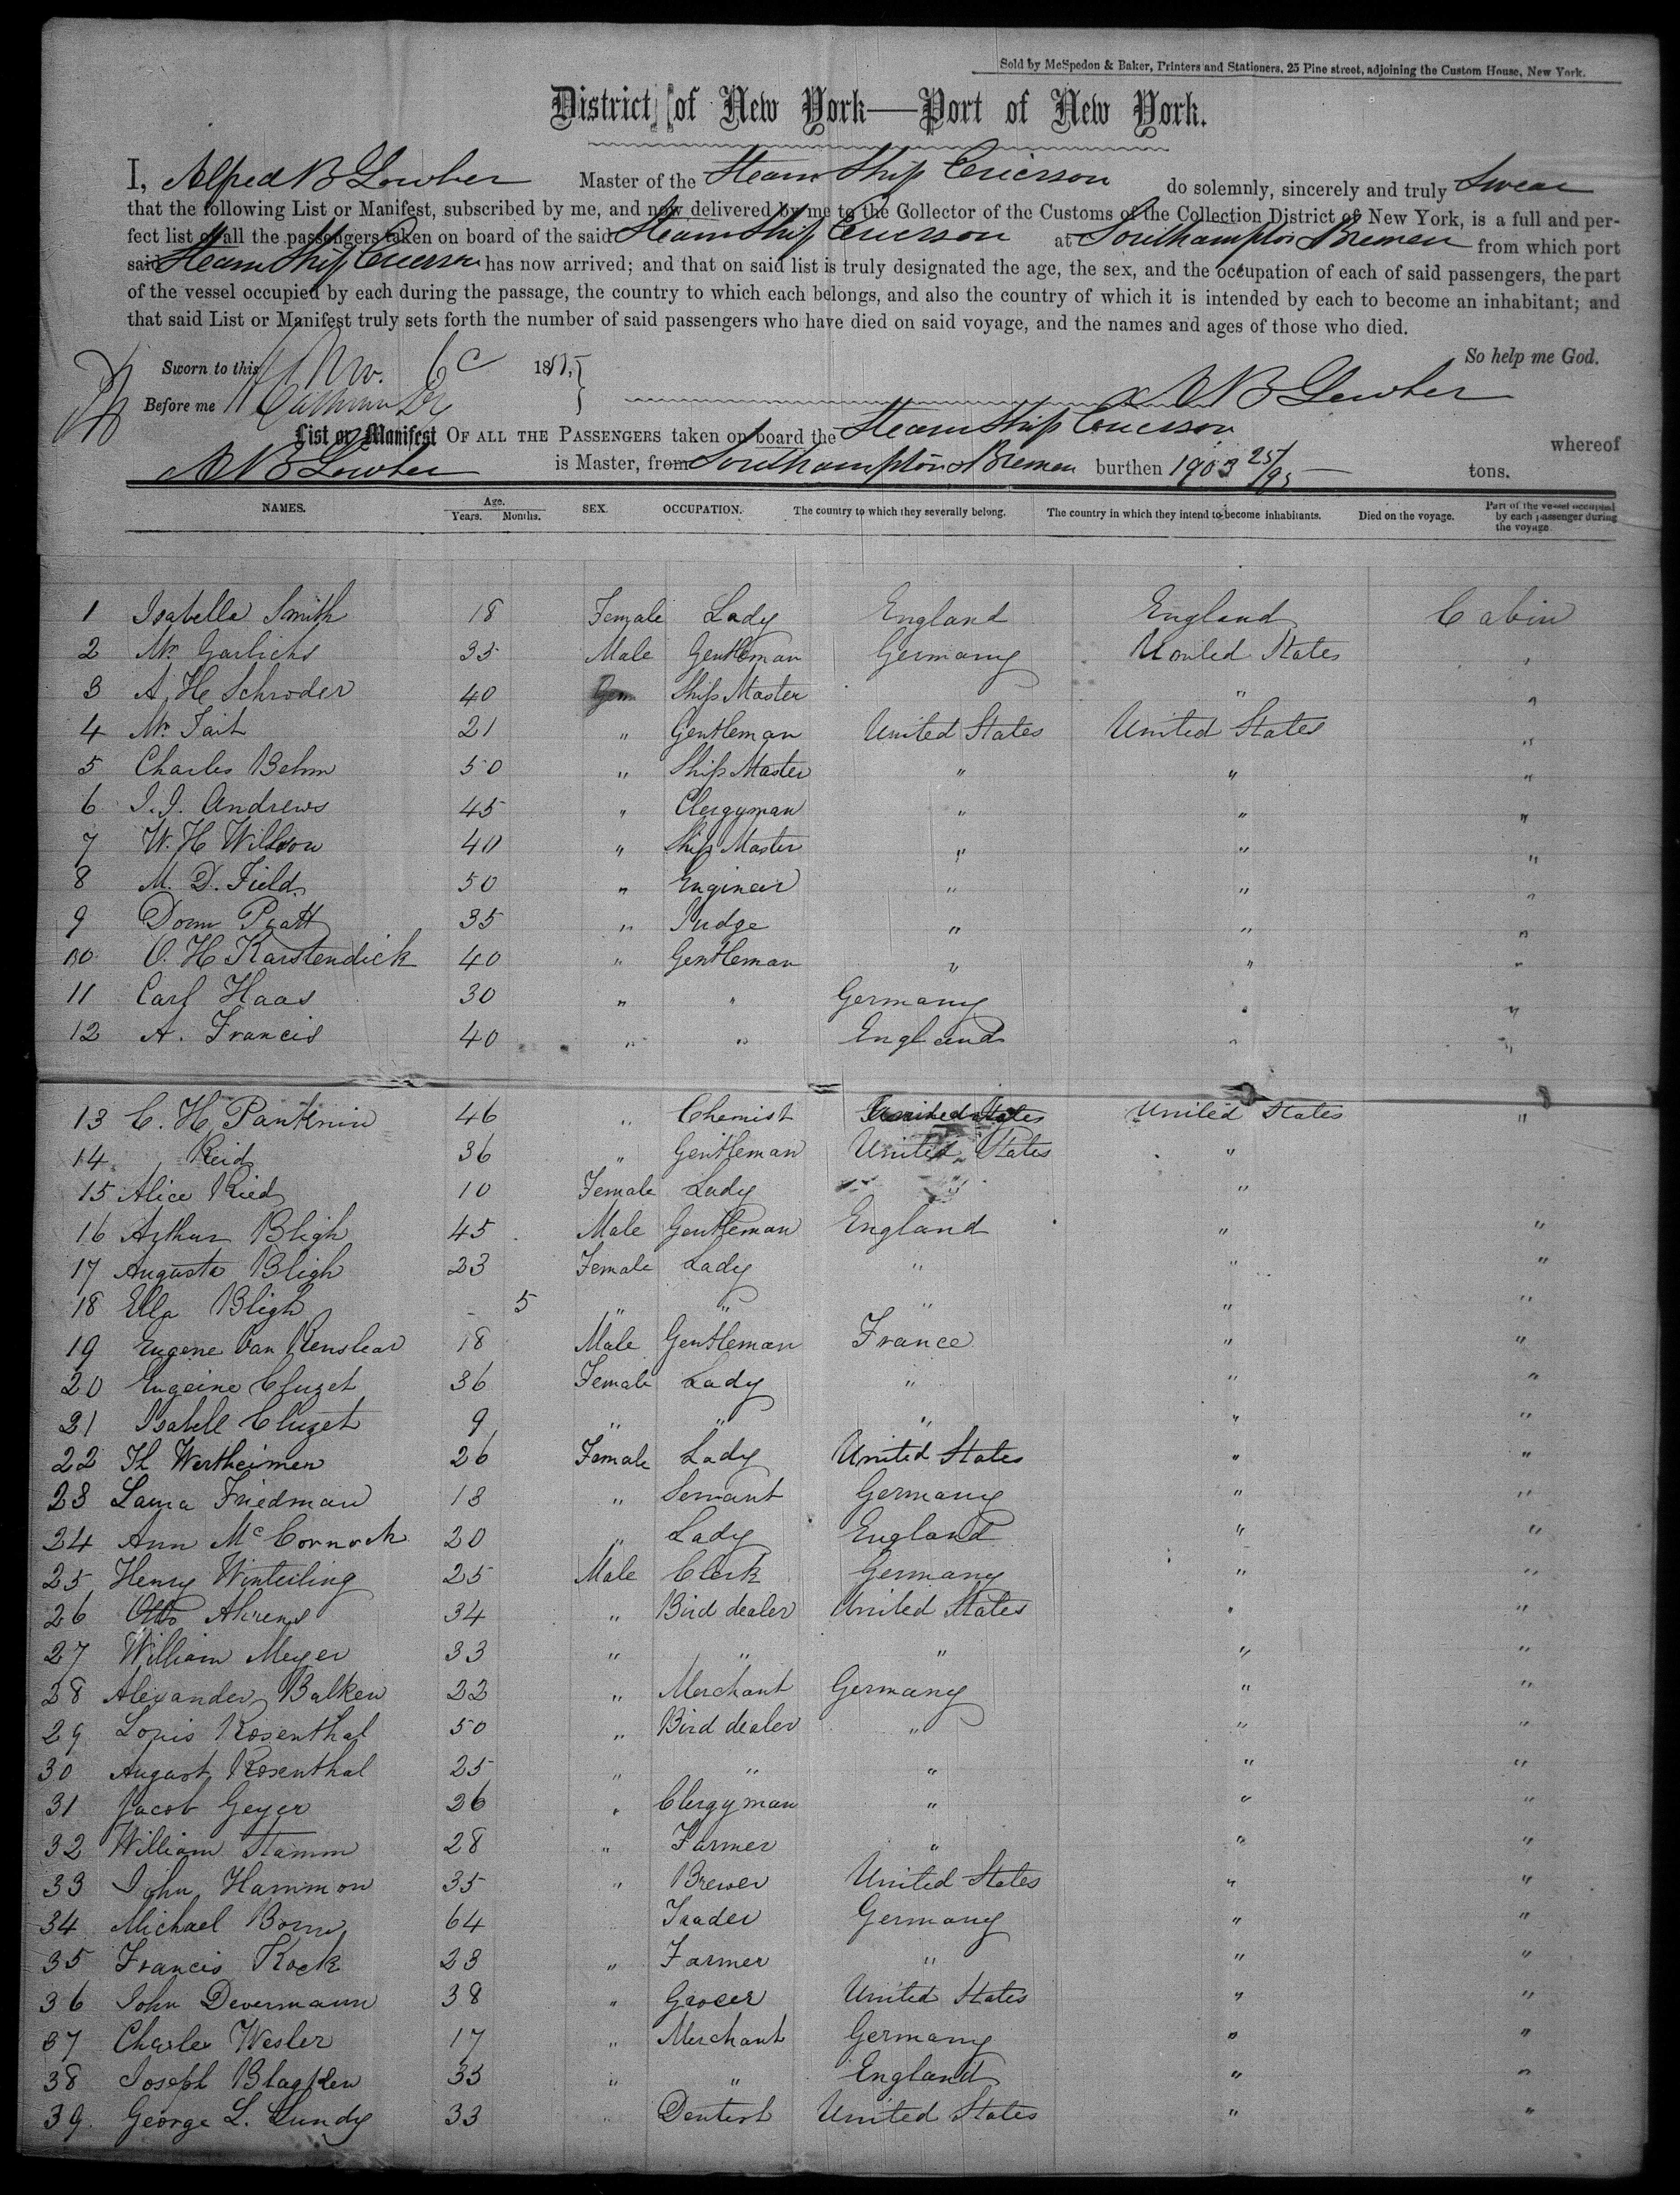 Sold by McSpedon & Baker, Printers and Stationers, 25 Pine street, adjoining the Custom House, New York.
District of New York—Port of New York.
I, Alfred B Lowber Master of the Steam Ship Ericsson do solemnly, sincerely and truly Swear
that the following List or Manifest, subscribed by me, and now delivered by me to the Collector of the Customs of the Collection District of New York, is a full and per-
fect list of all the passengers taken on board of the said Steam Ship Ericsson at Southampton & Bremen from which port
said Steam Ship Ericsson has now arrived; and that on said list is truly designated the age, the sex, and the occupation of each of said passengers, the part
of the vessel occupied by each during the passage, the country to which each belongs, and also the country of which it is intended by each to become an inhabitant; and
that said List or Manifest truly sets forth the number of said passengers who have died on said voyage, and the names and ages of those who died.
So help me God.
Sworn to this Nov. 185
Before me
A B Lowber
List or Manifest OF ALL THE PASSENGERS taken on board the Steam Ship Ericsson whereof
A B Lowber is Master, from Southampton & Bremen burthen 1903 25/95 tons.
NAMES. Age. Years. Months. SEX. OCCUPATION. The country to which they severally belong. The country in which they intend to become inhabitants. Died on the voyage. Part of the vessel occupied by each passenger during the voyage.
1 Isabella Smith 18 Female Lady England England Cabin
2 Mr Garlichs 35 Male Gentleman Germany United States "
3 A. H. Schroder 40 Ship Master " "
4 Mr Tait 21 " Gentleman United States United States "
5 Charles Behm 50 " Ship Master " " "
6 I. I. Andrews 45 " Clergyman " " "
7 W. H. Willson 40 " Ship Master " " "
8 M. D. Field 50 " Engineer " " "
9 Donn Piatt 35 " Judge " " "
10 O. H Karstendick 40 " Gentleman " " "
11 Carl Haas 30 " " Germany " "
12 A. Francis 40 " " England " "
13 C. H. Panknin 46 " Chemist United States United States "
14 Reid 36 " Gentleman United States "
15 Alice Ried 10 Female Lady "
16 Arthur Bligh 45 Male Gentleman England " "
17 Augusta Bligh 23 Female Lady " " "
18 Ella Bligh - 5 " " " " "
19 Eugene Van Renslear 18 Male Gentleman France " "
20 Eugeine Cluzet 36 Female Lady " " "
21 Isabell Cluzet 9 " " " " "
22 Th Wertheimen 26 Female Lady United States " "
23 Laura Friedman 18 " Servant Germany " "
24 Ann 20 " Lady England " "
25 Henry Winterling 25 Male Clerk Germany " "
26 Otto Ahrens 34 " Bird dealer United States " "
27 William Meyer 33 " " " " "
28 Alexander Balken 22 " Merchant Germany " "
29 Louis Rosenthal 50 " Bird dealer " " "
30 August Rosenthal 25 " " " " "
31 Jacob Geyer 26 " Clergyman " " "
32 William Stamm 28 " Farmer " " "
33 John Hammon 35 " Brewer United States " "
34 Michael Born 64 Trader Germany " "
35 Francis Rock 23 " Farmer " " "
36 John Devermann 38 " Grocer United States " "
37 Charles Wesler 17 " Merchant Germany " "
38 Joseph Blagden 33 " " England " "
39. George L. Lundy 33 " Dentist United States " "